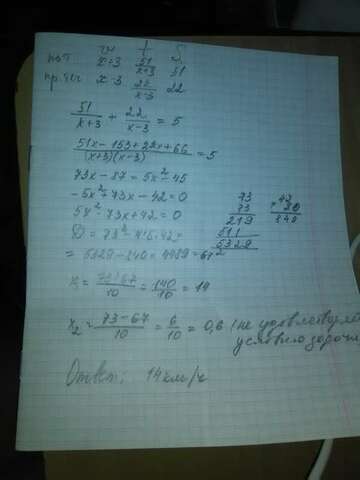 v t S
по т. x+3 51/x+3 51
пр. теч x-3 22/x-3 22
51/x+3 + 22/x-3 = 5
51x-153+22x+66/(x+3)(x-3) = 5
73x-87=5x²-45
-5x²+73x-42=0
5x²-73x+42=0
D=73²-4·5·42=
= 5329-840=4489=67²
73 73 219 511 5329
42 20 840
x₁=73+67/10=140/10=14
x₂=73-67/10=6/10=0,6 (не удовлетворяет
условию задачи
Ответ: 14км/ч